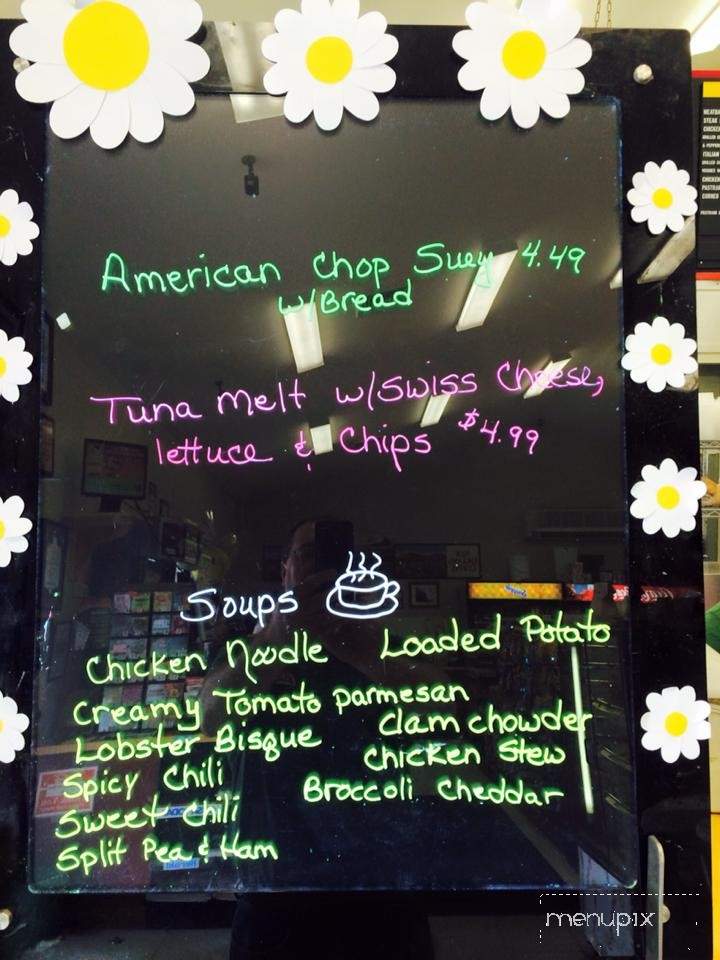 American Chop Suey 4.49
w/Bread
Tuna melt w/Swiss Cheese,
lettuce & Chips $4.99
Soups
Chicken Noodle
Loaded Potato
Creamy Tomato parmesan
Lobster Bisque
Clam chowder
Spicy Chili
Chicken Stew
Sweet Chili
Broccoli Cheddar
Split Pea & Ham
menupix